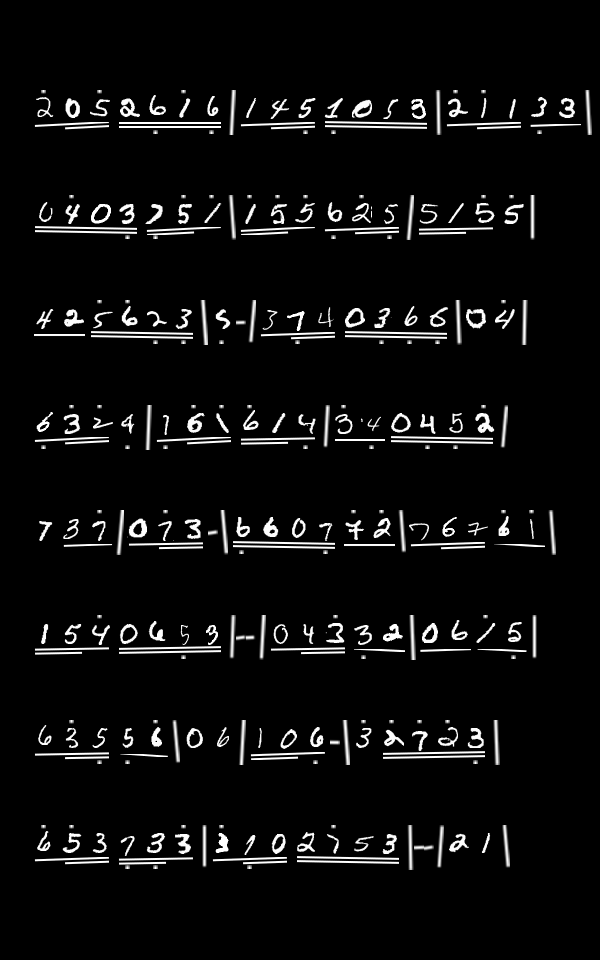 205 2616|145 1053|211 33
0403 751|155 625|51 55
42 5623|5-|374 0366|04
6324|161 617|3·4 0452
7 37|073-|6607 72|767 61
154 0653|--|043 32|06 15
635 56|06|106-|3 2723
653 733|170 2753|--|21